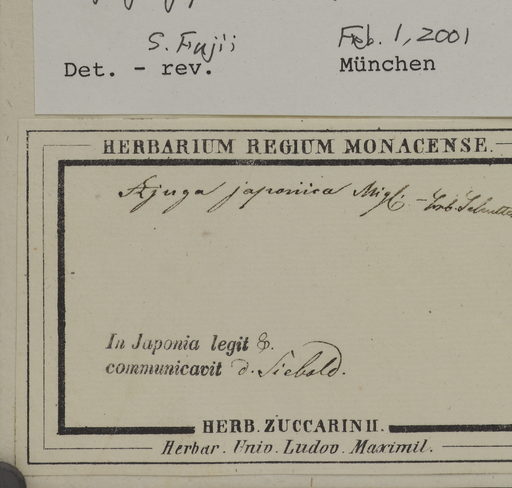 S. Fujii Feb. 1, 2001
Det. - rev. München
HERBARIUM REGIUM MONACENSE.
Ajuga japonica Miq.
In Japonia legit &.
communicavit d. Siebold.
HERB. ZUCCARINII.
Herbar. Univ. Ludov. Maximil.